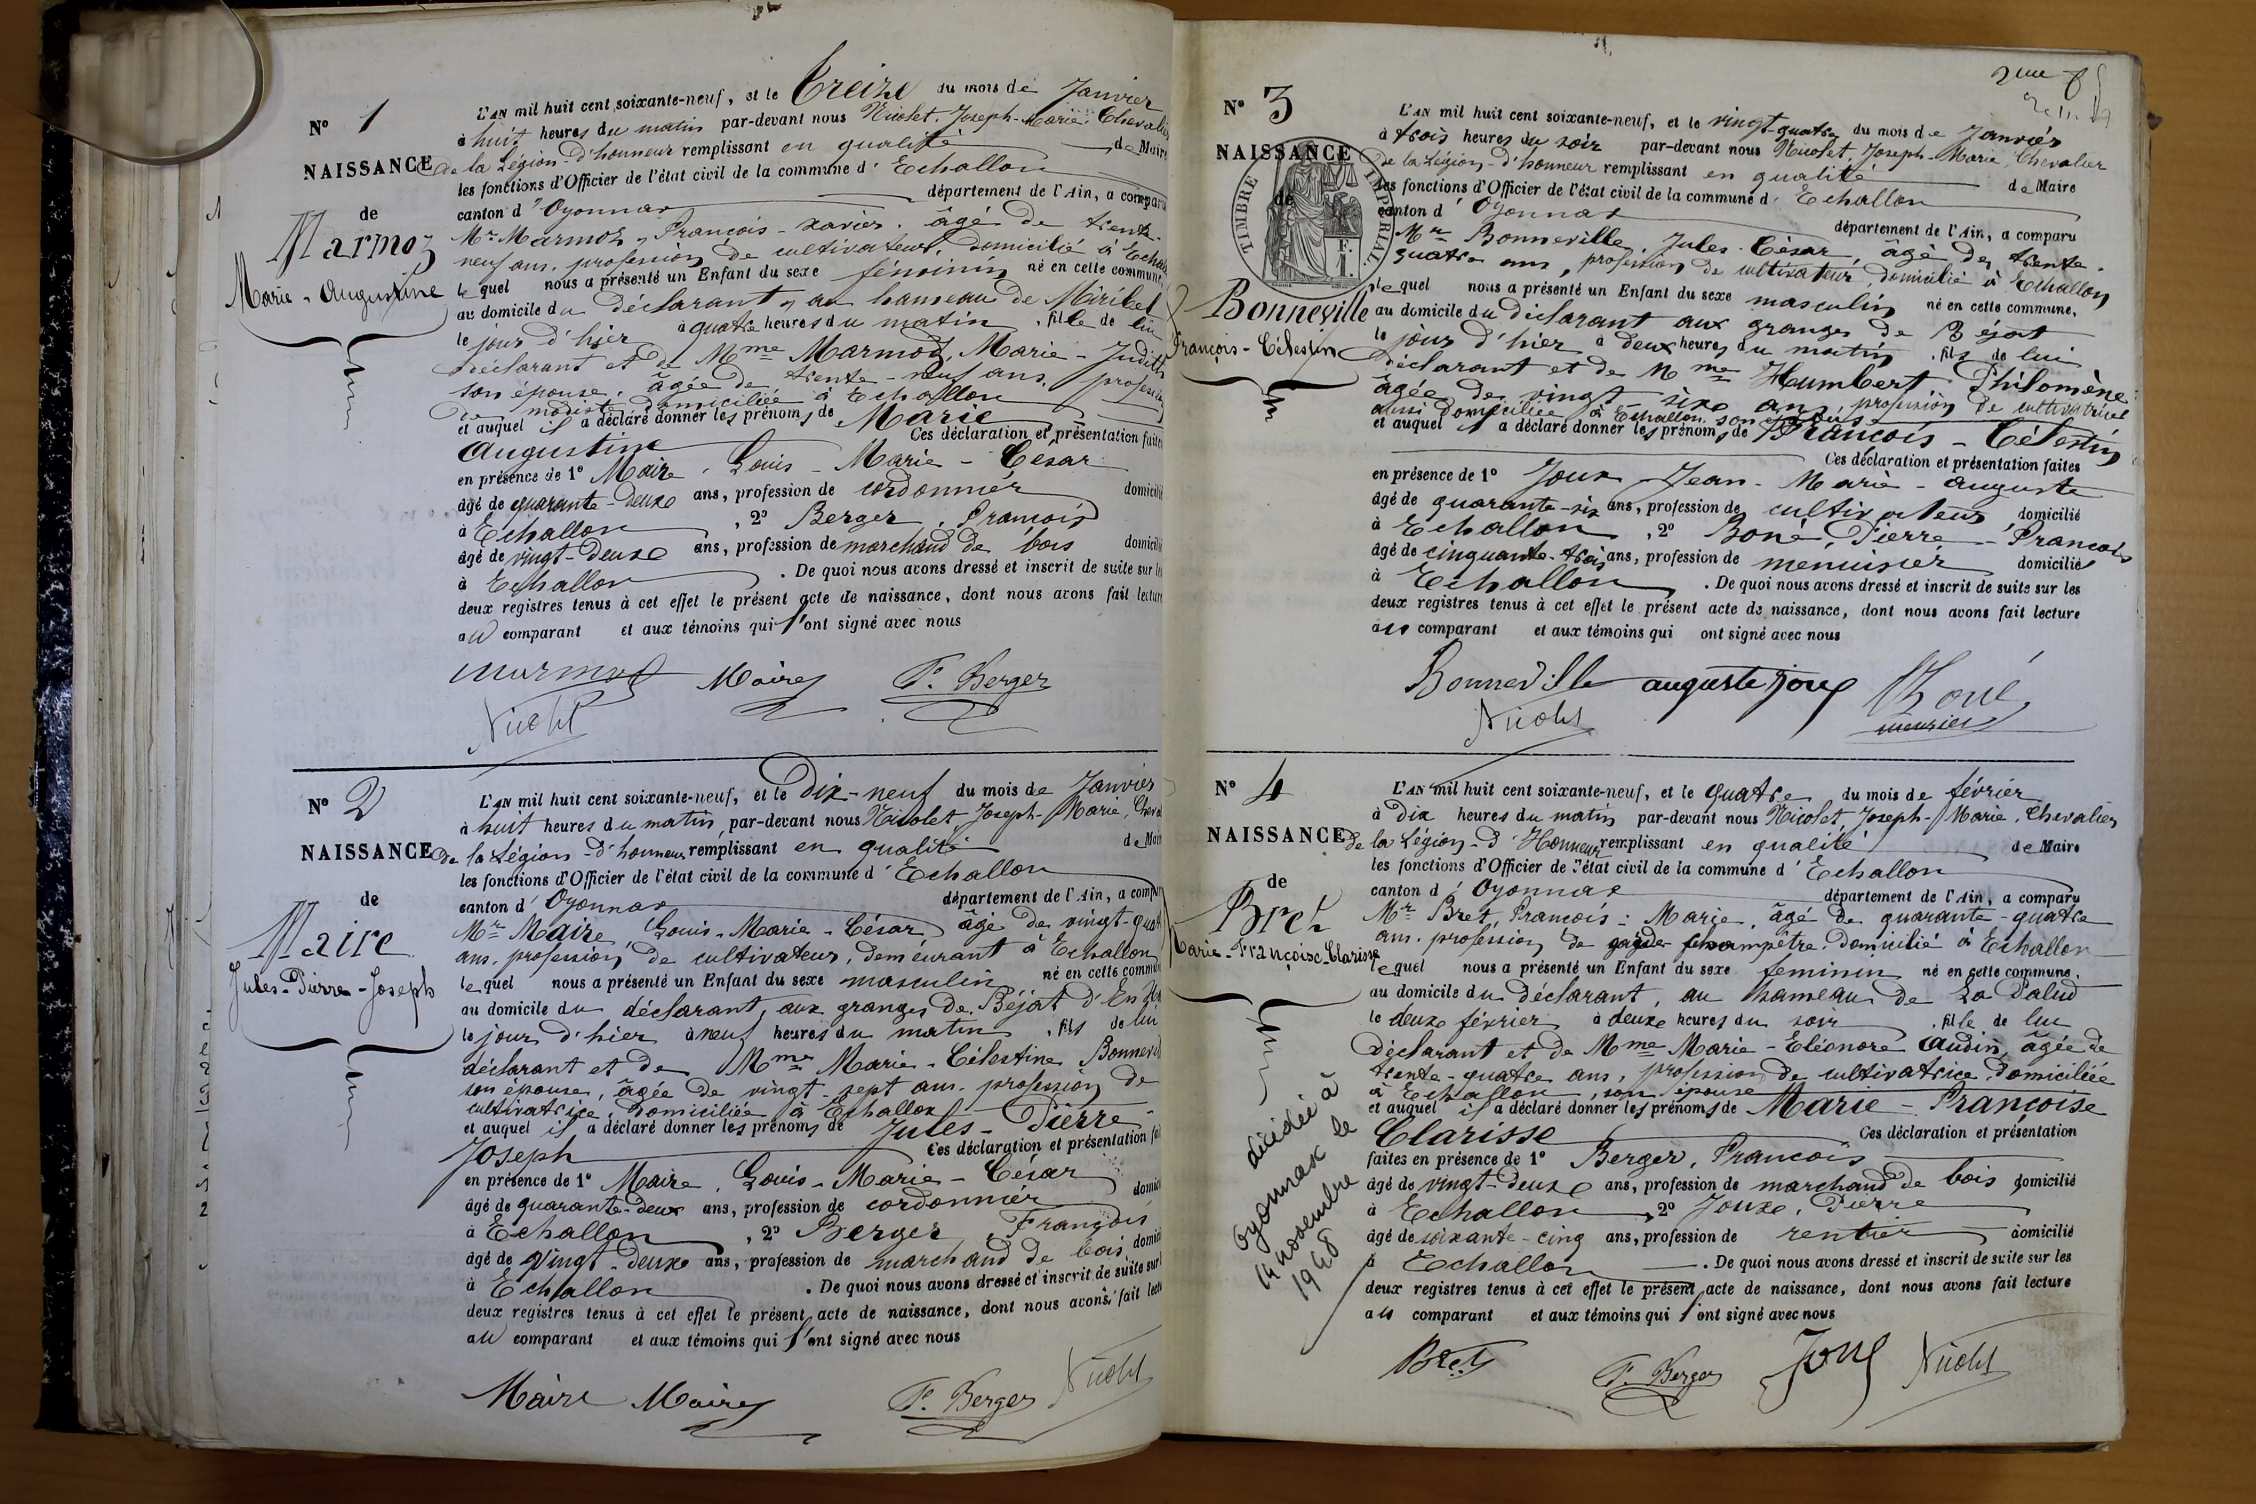 N° 1
NAISSANCE
de
Marmoz
Marie-Augustine
L'AN mil huit cent soixante-neuf, et le Treize du mois de Janvier
à huit heures du matin par-devant nous Nicolet, Joseph-Marie, Chevalier
de la Légion-d'honneur remplissant en qualité de Maire
les fonctions d'Officier de l'état civil de la commune d'Echallon
canton d'Oyonnax département de l'Ain, a comparu
Mr Marmoz, François-xavier, âgé de trente-
neuf ans, profession de cultivateur, domicilié à Echallon
lequel nous a présenté un Enfant du sexe féminin né en cette commune,
au domicile du déclarant, au hameau de Miribel
le jour d'hier à quatre heures du matin, fille de lui
déclarant et de Mme Marmoz, Marie-Judith
son épouse, âgée de trente-neuf ans, profession
de modiste domiciliée à Echallon
et auquel il a déclaré donner les prénoms de Marie
Augustine Ces déclaration et présentation faites
en présence de 1° Maire, Louis-Marie-César
âgé de quarante-deux ans, profession de cordonnier domicilié
à Echallon, 2° Berger, François
âgé de vingt-deux ans, profession de marchand de bois domicilié
à Echallon. De quoi nous avons dressé et inscrit de suite sur les
deux registres tenus à cet effet le présent acte de naissance, dont nous avons fait lecture
au comparant et aux témoins qui l'ont signé avec nous
Marmoz Maire F. Berger
Nicolet
N° 2
NAISSANCE
de
Maire
Jules-Pierre-Joseph
L'AN mil huit cent soixante-neuf, et le Dix-neuf du mois de Janvier
à huit heures du matin, par-devant nous Nicolet Joseph-Marie, Cheval
de la Légion-d'honneur remplissant en qualité de Maire
les fonctions d'Officier de l'état civil de la commune d'Echallon
canton d'Oyonnax département de l'Ain, a comparu
Mr Maire, Louis-Marie-César, âgé de vingt-quat
ans, profession de cultivateur, demeurant à Echallon
lequel nous a présenté un Enfant du sexe masculin né en cette commune
au domicile du déclarant, aux granges de Béjat d'En
le jour d'hier à neuf heures du matin, fils de lui
déclarant et de Mme Marie-Célestine Bonnevil
son épouse, âgée de vingt-sept ans, profession de
cultivatrice, domiciliée à Echallon
et auquel il a déclaré donner les prénoms de Jules-Pierre-
Joseph Ces déclaration et présentation fai
en présence de 1° Maire, Louis-Marie-César
âgé de quarante-deux ans, profession de cordonnier domici
à Echallon, 2° Berger, François
âgé de vingt-deux ans, profession de marchand de bois, domici
à Echallon. De quoi nous avons dressé et inscrit de suite sur l
deux registres tenus à cet effet le présent acte de naissance, dont nous avons fait lectu
au comparant et aux témoins qui l'ont signé avec nous
Maire Maire F. Berger Nicolet
N° 3
NAISSANCE
de
TIMBRE IMPERIAL
Bonneville
François-Célestin
L'AN mil huit cent soixante-neuf, et le vingt-quatre du mois de Janvier
à trois heures du soir par-devant nous Nicolet, Joseph-Marie Chevalier
de la Légion-d'honneur remplissant en qualité de Maire
les fonctions d'Officier de l'état civil de la commune d'Echallon
canton d'Oyonnax département de l'Ain, a comparu
Mr Bonneville, Jules-César, âgé de trente-
quatre ans, profession de cultivateur, domicilié à Echallon
lequel nous a présenté un Enfant du sexe masculin né en cette commune,
au domicile du déclarant aux granges de Béjat
le jour d'hier à deux heures du matin, fils de lui
déclarant et de Mme Humbert Philomène
âgée de vingt-six ans, profession de cultivatrice
aussi domiciliée à Echallon son épouse
et auquel il a déclaré donner les prénoms de François-Célestin
Ces déclaration et présentation faites
en présence de 1° Joux Jean-Marie-Auguste
âgé de quarante-six ans, profession de cultivateur domicilié
à Echallon, 2° Boné, Pierre-François
âgé de cinquante-trois ans, profession de menuisier domicilié
à Echallon. De quoi nous avons dressé et inscrit de suite sur les
deux registres tenus à cet effet le présent acte de naissance, dont nous avons fait lecture
aux comparant et aux témoins qui ont signé avec nous
Bonneville auguste joux Boné
Nicolet
N° 4
NAISSANCE
de
Bret
Marie-Françoise-Clarisse
décédée à
Oyonnax le
14 novembre
1948
L'AN mil huit cent soixante-neuf, et le quatre du mois de février
à dix heures du matin par-devant nous Nicolet Joseph-Marie, Chevalier
de la Légion-d'Honneur remplissant en qualité de Maire
les fonctions d'Officier de l'état civil de la commune d'Echallon
canton d'Oyonnax département de l'Ain, a comparu
Mr Bret, François-Marie, âgé de quarante-quatre
ans, profession de garde champêtre, domicilié à Echallon
lequel nous a présenté un Enfant du sexe feminin né en cette commune,
au domicile du déclarant, au hameau de La Palud
le deux février à deux heures du soir, fille de lui
déclarant et de Mme Marie-Eléonore Audin, âgée de
trente-quatre ans, profession de cultivatrice, domiciliée
à Echallon, son épouse
et auquel il a déclaré donner les prénoms de Marie-Françoise
Clarisse Ces déclaration et présentation
faites en présence de 1° Berger, François
âgé de vingt-deux ans, profession de marchand de bois domicilié
à Echallon, 2° Joux, Pierre
âgé de soixante-cinq ans, profession de rentier domicilié
à Echallon. De quoi nous avons dressé et inscrit de suite sur les
deux registres tenus à cet effet le présent acte de naissance, dont nous avons fait lecture
aux comparant et aux témoins qui l'ont signé avec nous
Bret F. Berger Joux Nicolet